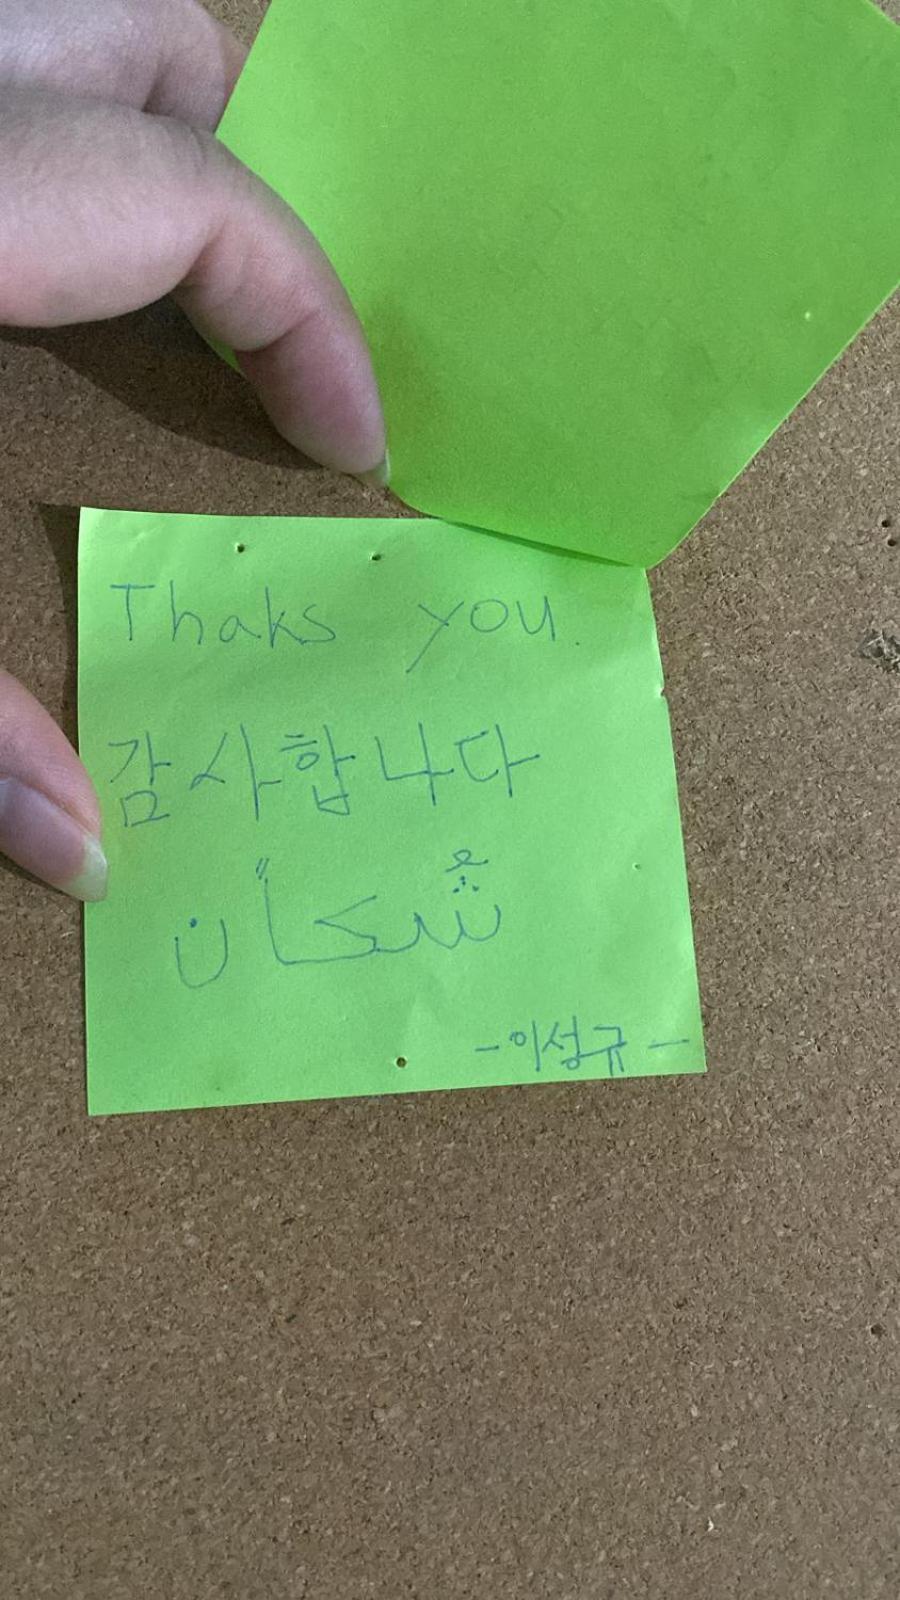 Thaks you.
감사합니다
شُكاً ن
-이성규-